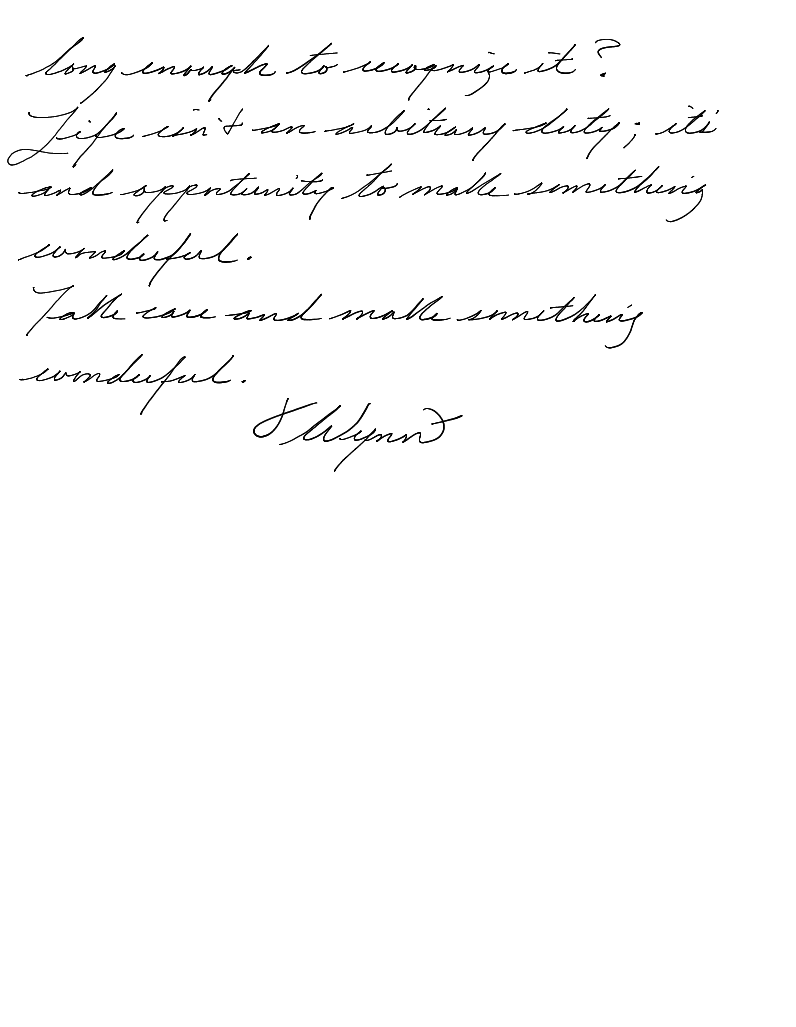 long enough to recognize it?
Life isn't an arbitrary duty; it's
and opportunity to make something
wonderful.
Take care and make something
wonderful.
Wynn